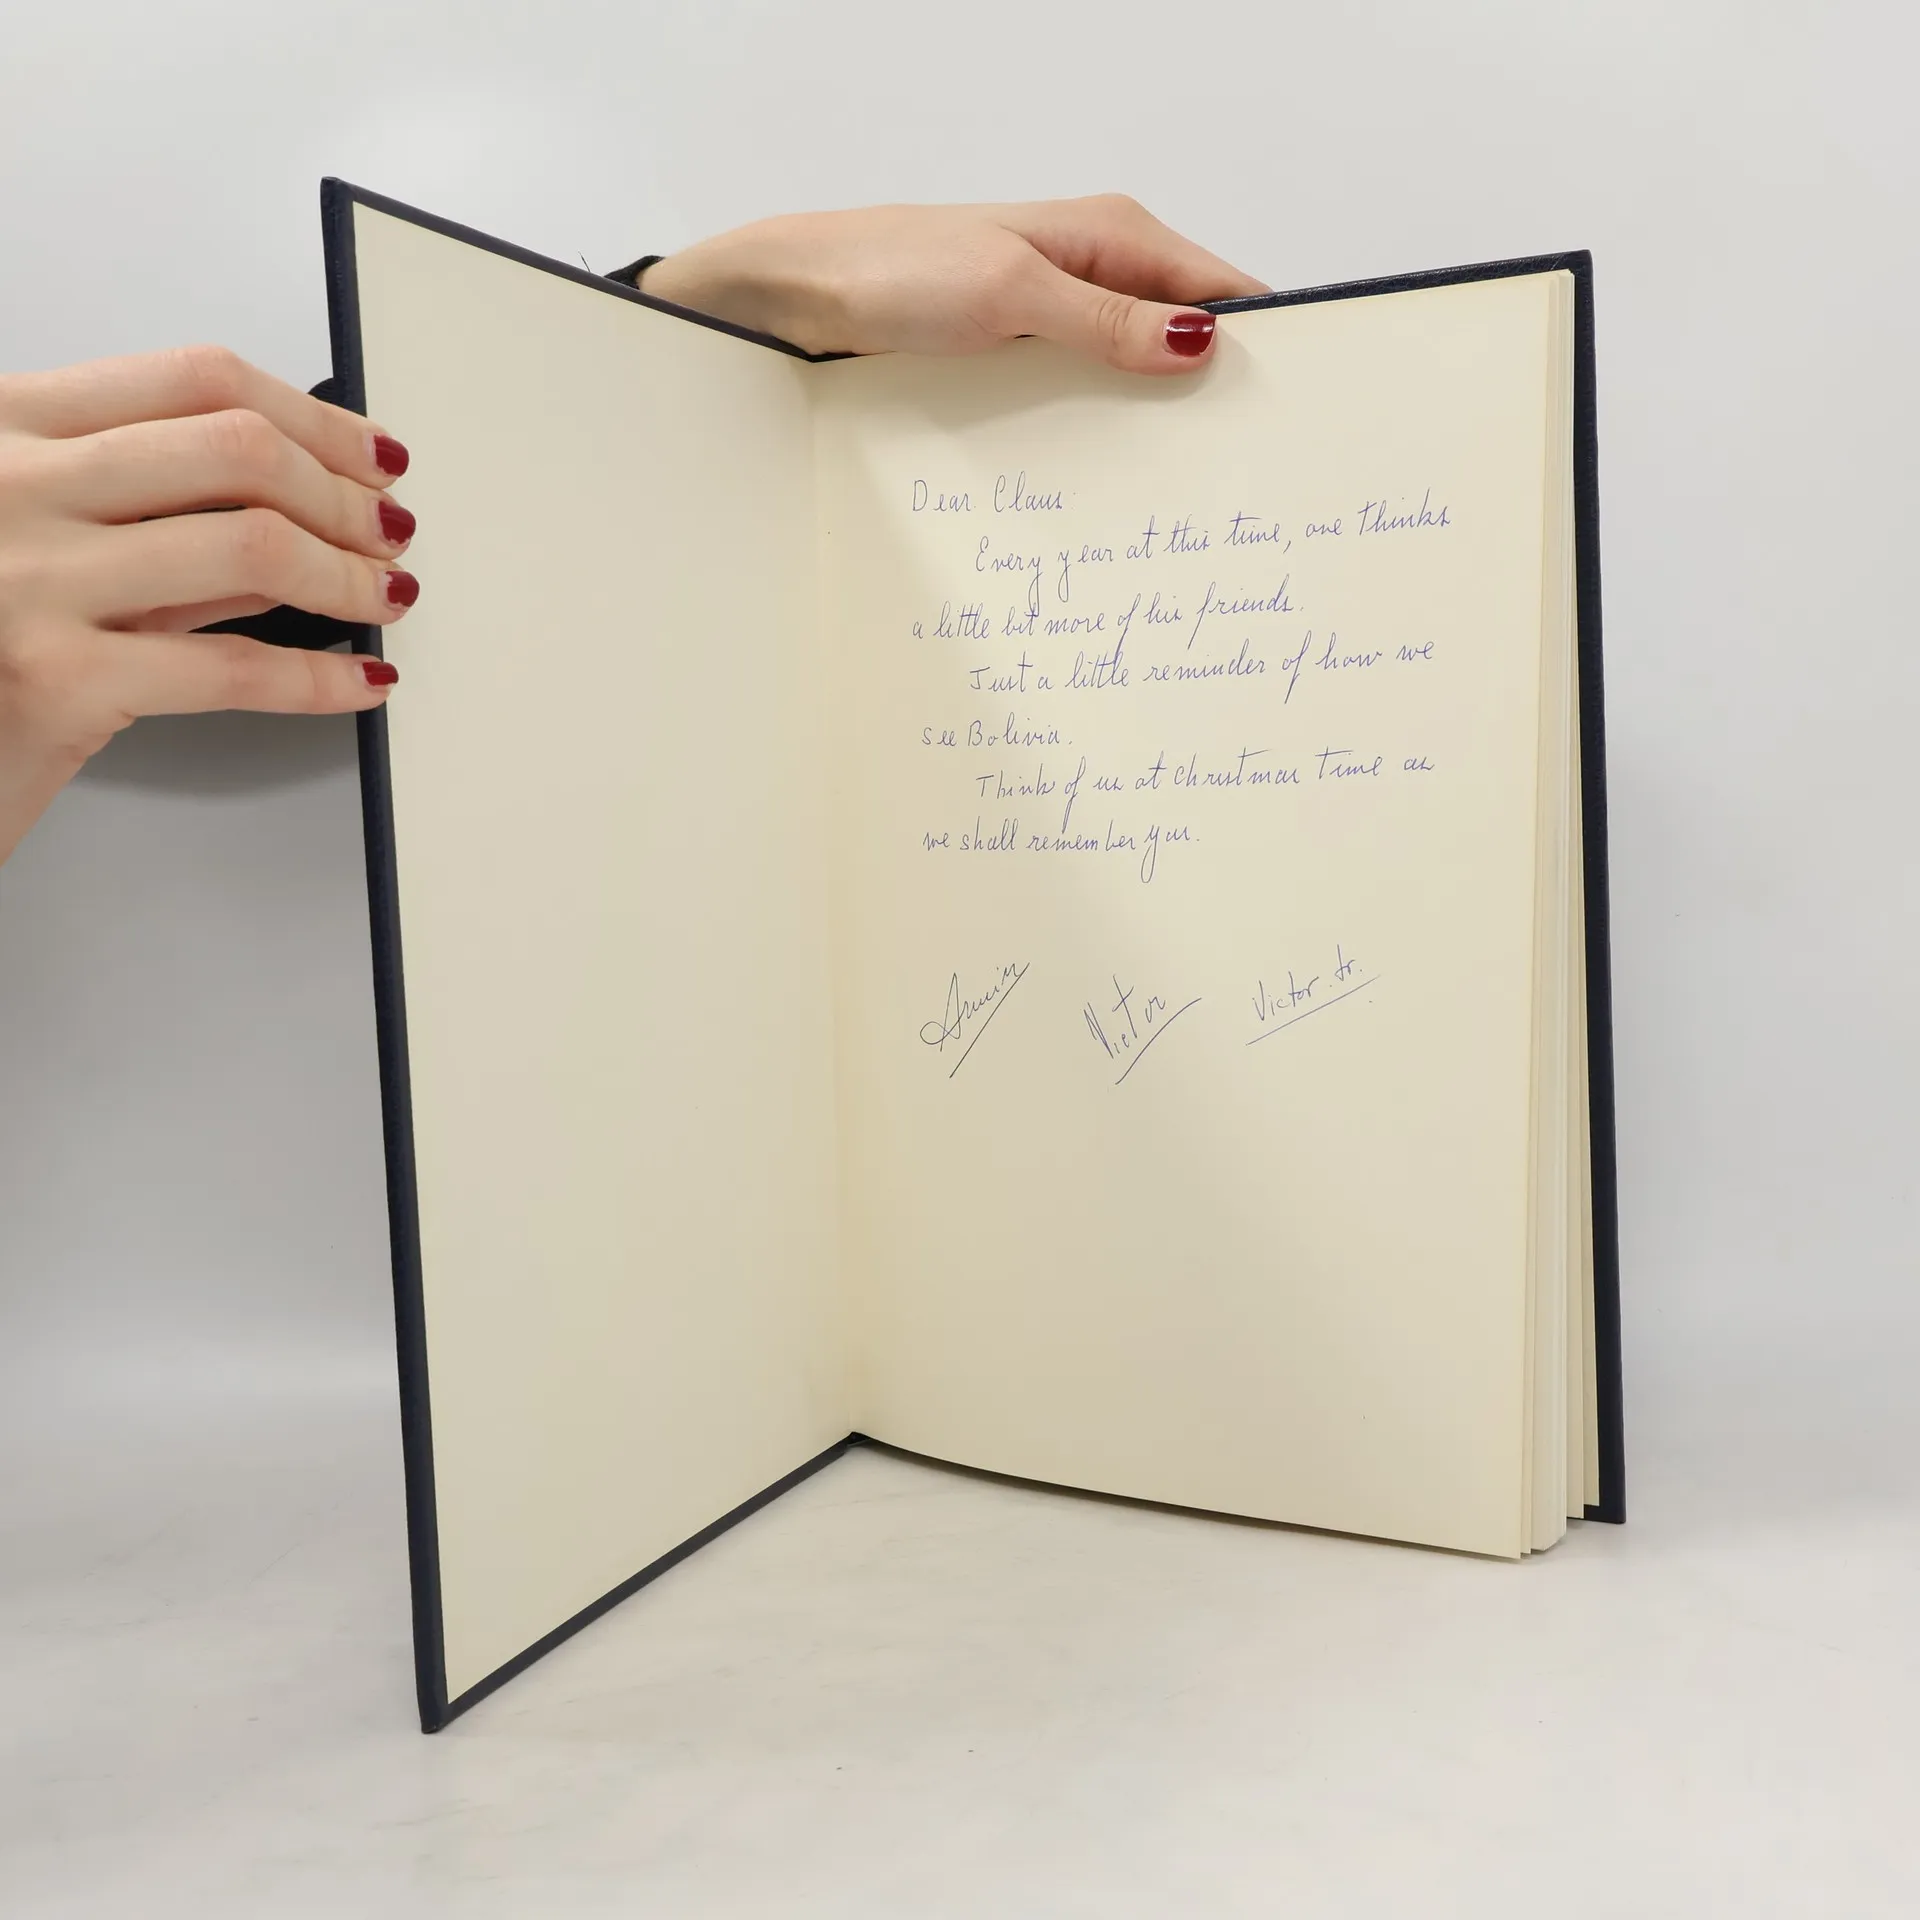 Dear Claus:
Every year at this time, one thinks
a little bit more of his friends.
Just a little reminder of how we
see Bolivia.
Think of us at christmas time as
we shall remember you.
Armin Victor Victor Jr.